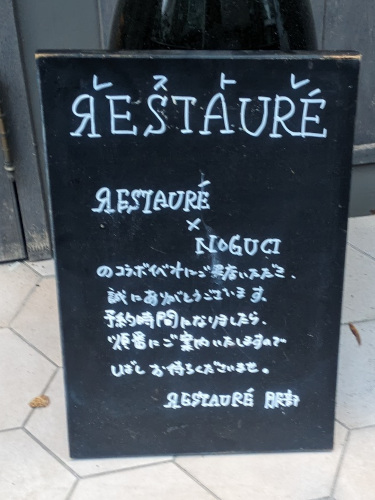 レストレ
RESTAURÉ
RESTAURÉ
×
NOGUCI
のコラボイベントにご来店いただき、
誠にありがとうございます。
予約時間になりましたら、
順番にご案内いたしますので
しばしお待ちくださいませ。
RESTAURÉ 服部